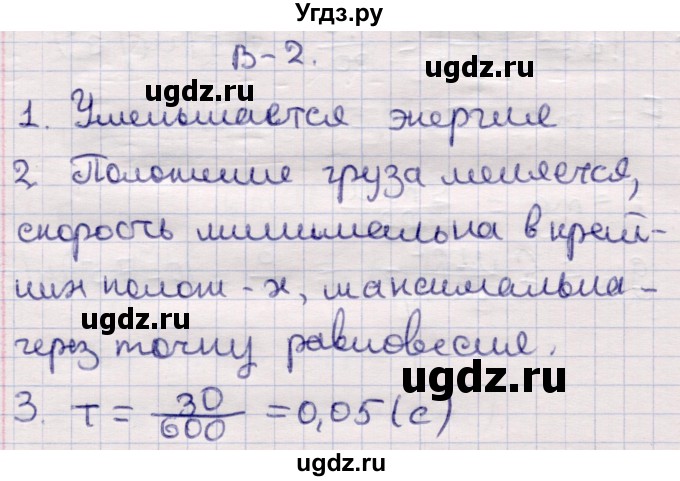 Угдз.ру
В-2.
ugdz.ru
1. Уменьшается энергия
ugdz.ru
2 Положение груза меняется,
скорость минимальна в край-
них полож-х, максимальна -
ugdz.ru
через точку равновесия.
ugdz.ru
3. T = 30/600 = 0,05 (с)
ugdz.ru